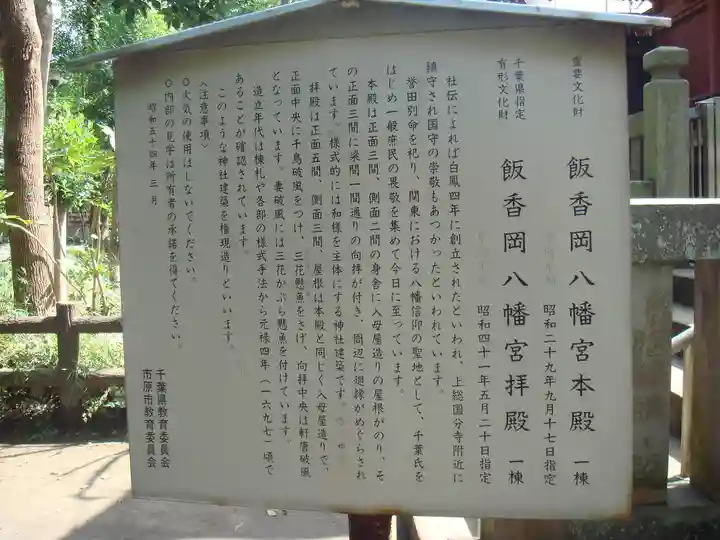 重要文化財
飯香岡八幡宮本殿 一棟
昭和二十九年九月十七日指定
千葉県指定
有形文化財
飯香岡八幡宮拝殿 一棟
昭和四十一年五月二十日指定
社伝によれば白鳳四年に創立されたといわれ、上総国分寺附近に
鎮守され国守の崇敬もあつかったといわれています。
誉田別命を祀り、関東における八幡信仰の聖地として、千葉氏を
はじめ一般庶民の畏敬を集めて今日に至っています。
本殿は正面三間、側面二間の身舎に入母屋造りの屋根がのり、そ
の正面三間に梁間一間通りの向拝が付き、周辺に廻縁がめぐらされ
ています。様式的には和様を主体にする神社建築です。
拝殿は正面五間、側面三間、屋根は本殿と同じく入母屋造りで、
正面中央に千鳥破風をつけ、三花懸魚をさげ、向拝中央は軒唐破風
となっています。妻破風には三花かぶら懸魚を付けています。
造立年代は棟札や各部の様式手法から元禄四年(一六九七)頃で
あることが確認されています。
このような神社建築を権現造りといいます。
〈注意事項〉
○火気の使用はしないでください。
○内部の見学は所有者の承諾を得てください。
昭和五十四年三月
千葉県教育委員会
市原市教育委員会